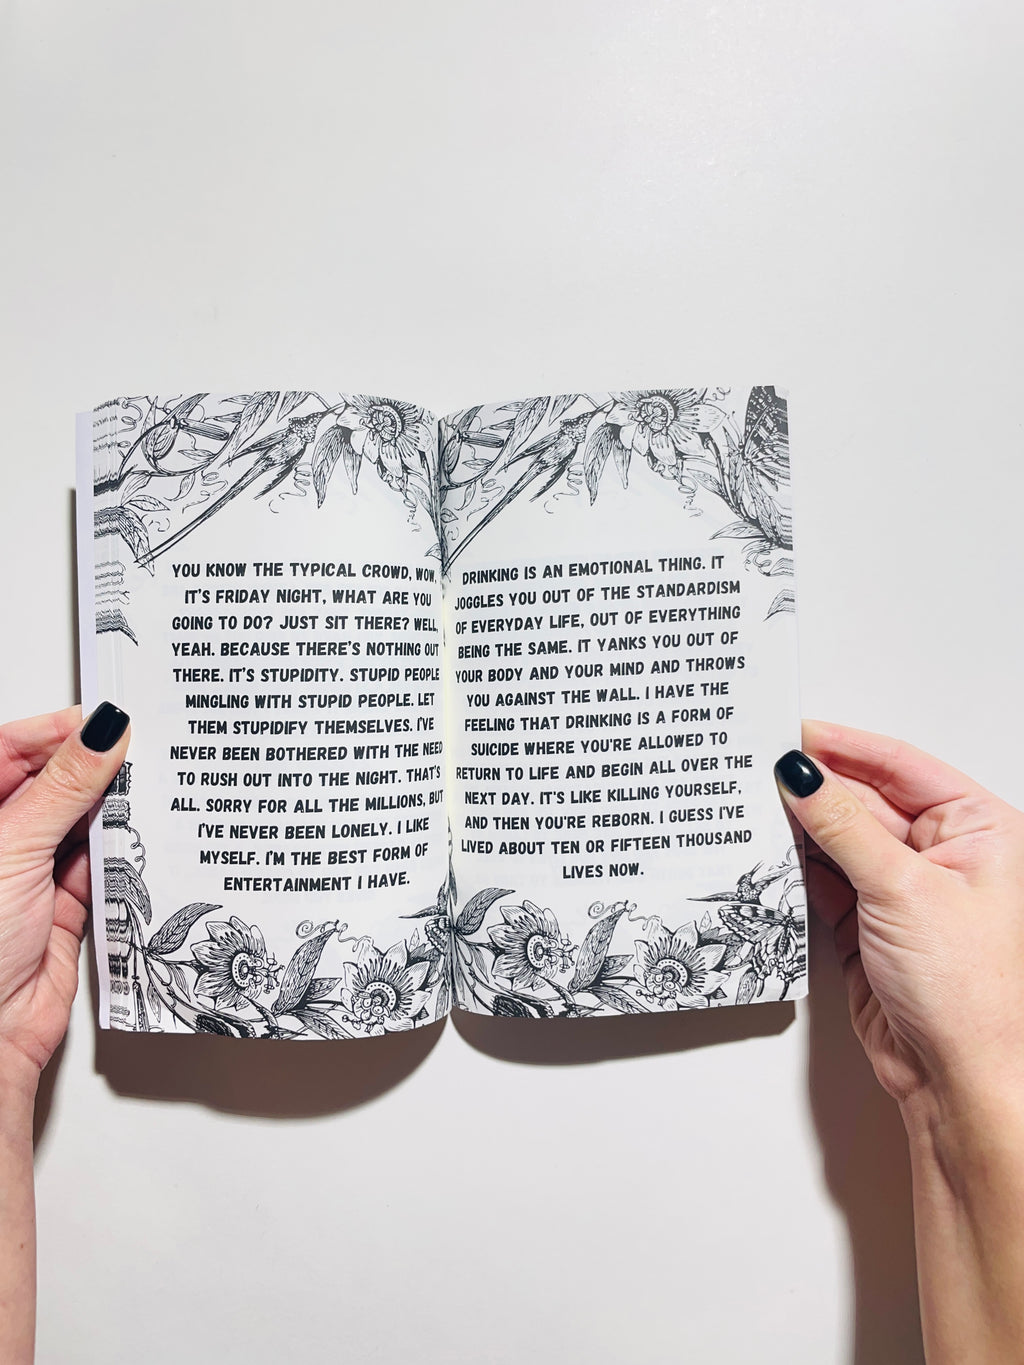 YOU KNOW THE TYPICAL CROWD, WOW,
IT'S FRIDAY NIGHT, WHAT ARE YOU
GOING TO DO? JUST SIT THERE? WELL,
YEAH. BECAUSE THERE'S NOTHING OUT
THERE. IT'S STUPIDITY. STUPID PEOPLE
MINGLING WITH STUPID PEOPLE. LET
THEM STUPIDIFY THEMSELVES. I'VE
NEVER BEEN BOTHERED WITH THE NEED
TO RUSH OUT INTO THE NIGHT. THAT'S
ALL. SORRY FOR ALL THE MILLIONS, BUT
I'VE NEVER BEEN LONELY. I LIKE
MYSELF. I'M THE BEST FORM OF
ENTERTAINMENT I HAVE.
DRINKING IS AN EMOTIONAL THING. IT
JOGGLES YOU OUT OF THE STANDARDISM
OF EVERYDAY LIFE, OUT OF EVERYTHING
BEING THE SAME. IT YANKS YOU OUT OF
YOUR BODY AND YOUR MIND AND THROWS
YOU AGAINST THE WALL. I HAVE THE
FEELING THAT DRINKING IS A FORM OF
SUICIDE WHERE YOU'RE ALLOWED TO
RETURN TO LIFE AND BEGIN ALL OVER THE
NEXT DAY. IT'S LIKE KILLING YOURSELF,
AND THEN YOU'RE REBORN. I GUESS I'VE
LIVED ABOUT TEN OR FIFTEEN THOUSAND
LIVES NOW.